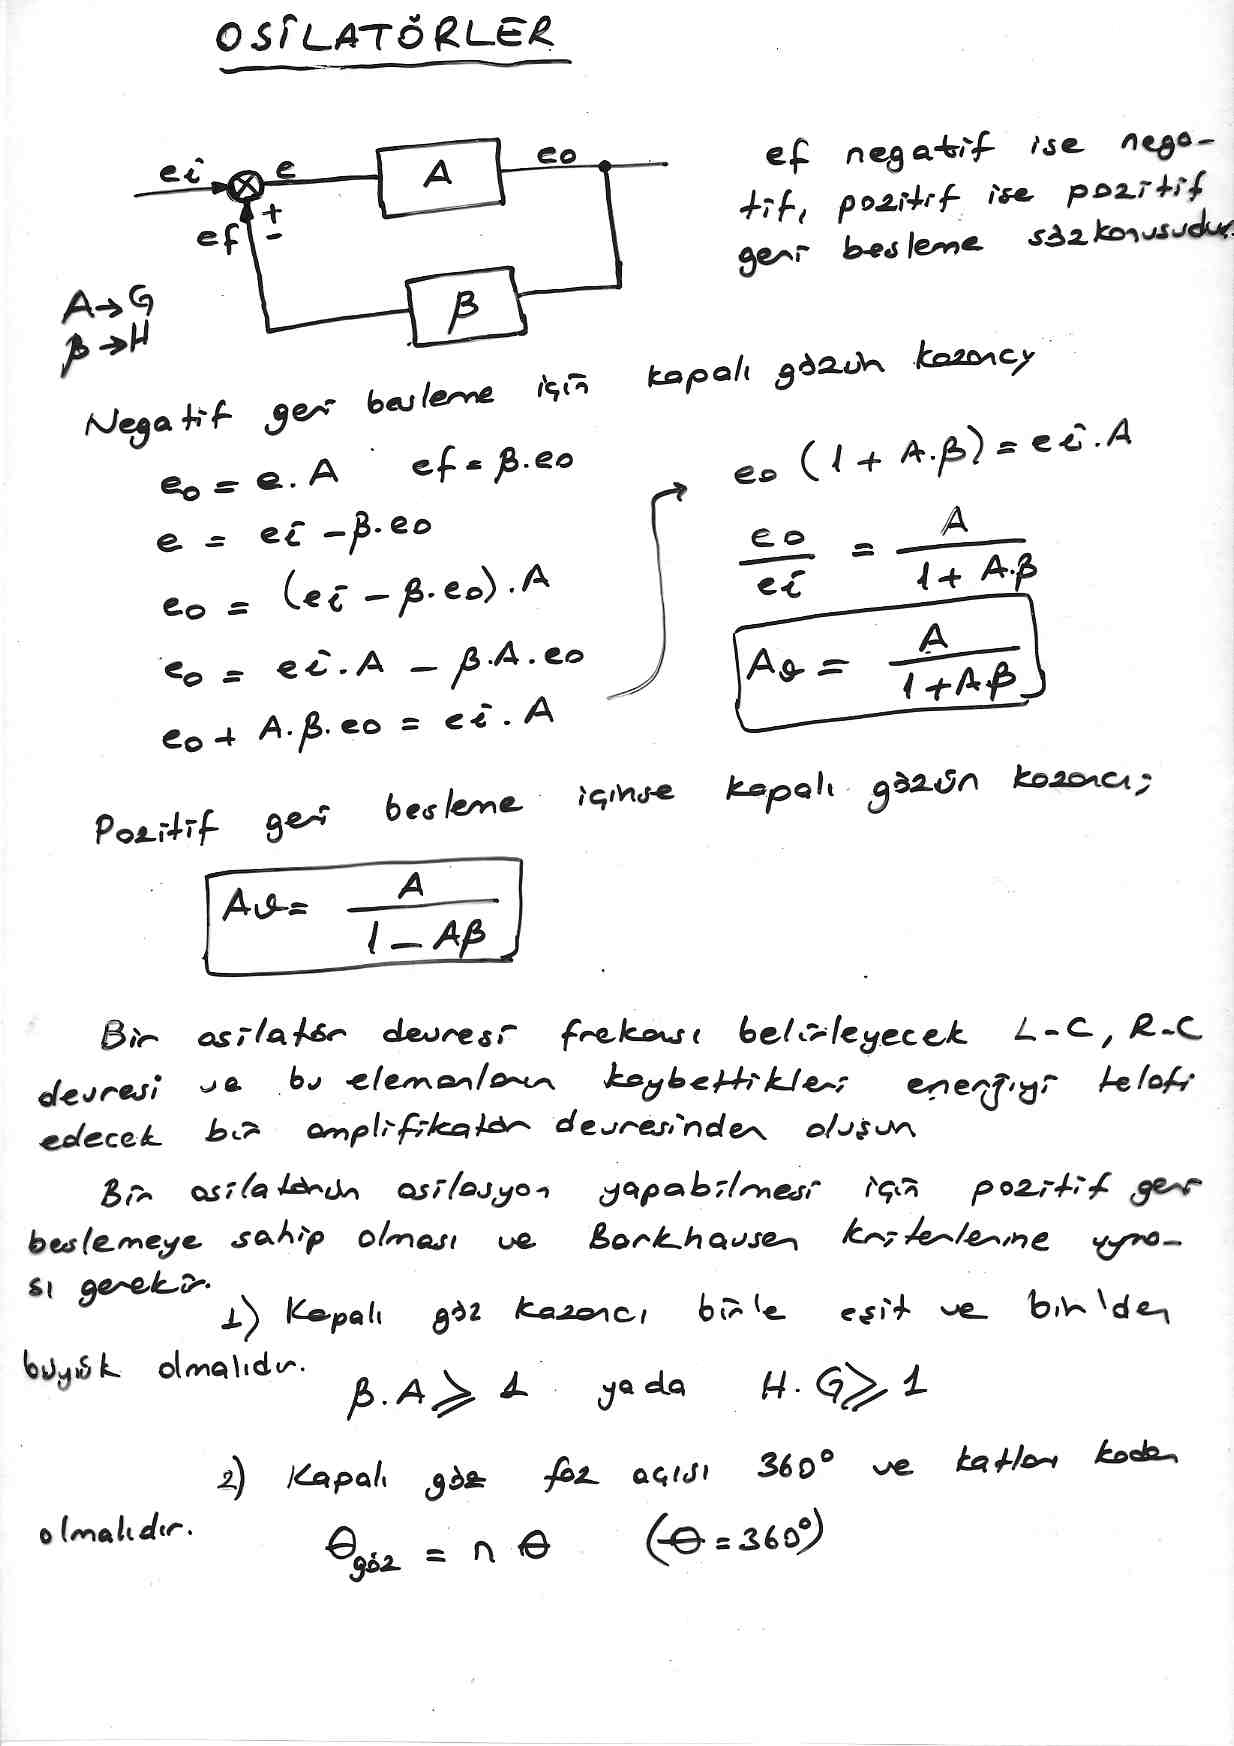 OSİLATÖRLER
ei
e
A
eo
+
-
ef
β
A→G
β→H
ef negatif ise nega-
tif, pozitif ise pozitif
geri besleme sözkonusudur.
Negatif geri besleme için kapalı gözün kazancı
eo = e.A ef = β.eo
e = ei - β.eo
eo = (ei - β.eo).A
eo = ei.A - β.A.eo
eo + A.β.eo = ei.A
eo (1 + A.β) = ei.A
eo/ei = A/(1 + A.β)
Aϑ = A/(1 + A.β)
Pozitif geri besleme içinse kapalı gözün kazancı;
Aϑ = A/(1 - Aβ)
Bir osilatör devresi frekansı belirleyecek L-C, R-C
devresi ve bu elemanların kaybettikleri enerjiyi telafi
edecek bir amplifikatör devresinden oluşur
Bir osilatörün osilasyon yapabilmesi için pozitif geri
beslemeye sahip olması ve Barkhausen kriterlerine uyma-
sı gerekir.
1) Kapalı göz kazancı bir'e eşit ve bir'den
büyük olmalıdır.
β.A ⩾ 1 yada H.G ⩾ 1
2) Kapalı göz faz açısı 360° ve katları kadar
olmalıdır.
θgöz = n θ (θ = 360°)